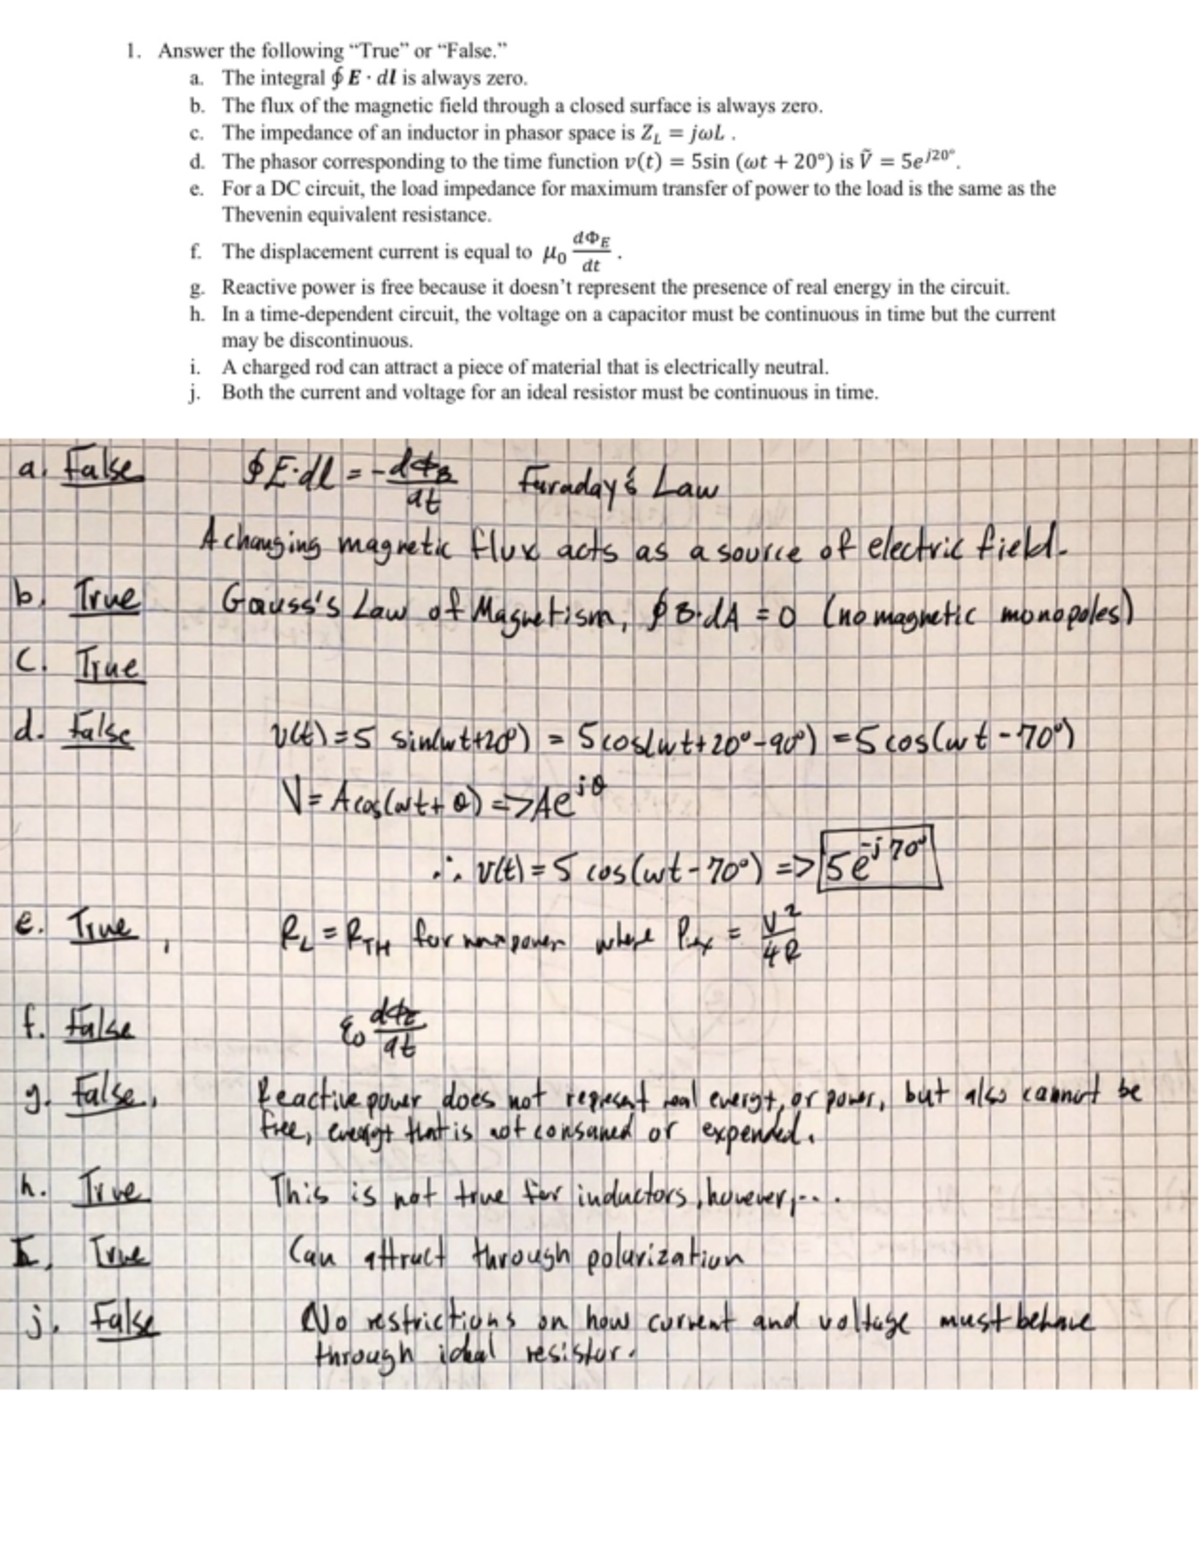 1. Answer the following “True” or “False.”
a. The integral ∮ E · dl is always zero.
b. The flux of the magnetic field through a closed surface is always zero.
c. The impedance of an inductor in phasor space is Z_L = jωL .
d. The phasor corresponding to the time function v(t) = 5sin (ωt + 20°) is Ṽ = 5e^{j20°}.
e. For a DC circuit, the load impedance for maximum transfer of power to the load is the same as the
Thevenin equivalent resistance.
f. The displacement current is equal to μ₀ dΦ_E/dt .
g. Reactive power is free because it doesn’t represent the presence of real energy in the circuit.
h. In a time-dependent circuit, the voltage on a capacitor must be continuous in time but the current
may be discontinuous.
i. A charged rod can attract a piece of material that is electrically neutral.
j. Both the current and voltage for an ideal resistor must be continuous in time.
a. False ∮E·dl = -dΦ_B/dt Faraday's Law
A changing magnetic flux acts as a source of electric field.
b. True Gauss's Law of Magnetism, ∮B·dA = 0 (no magnetic monopoles)
C. True
d. False v(t) = 5 sin(ωt+20°) = 5cos(ωt+20°-90°) = 5cos(ωt-70°)
V = Acos(ωt+θ) => Ae^{jθ}
∴ v(t) = 5 cos(ωt-70°) => 5e^{-j70°}
e. True, R_L = R_TH for max power where P = V²/4R
f. False ε₀ dΦ_E/dt
g. False, Reactive power does not represent real energy, or power, but also cannot be
free, energy that is not consumed or expended.
h. True This is not true for inductors, however,...
I. True Can attract through polarization
j. False No restrictions on how current and voltage must behave
through ideal resistor.